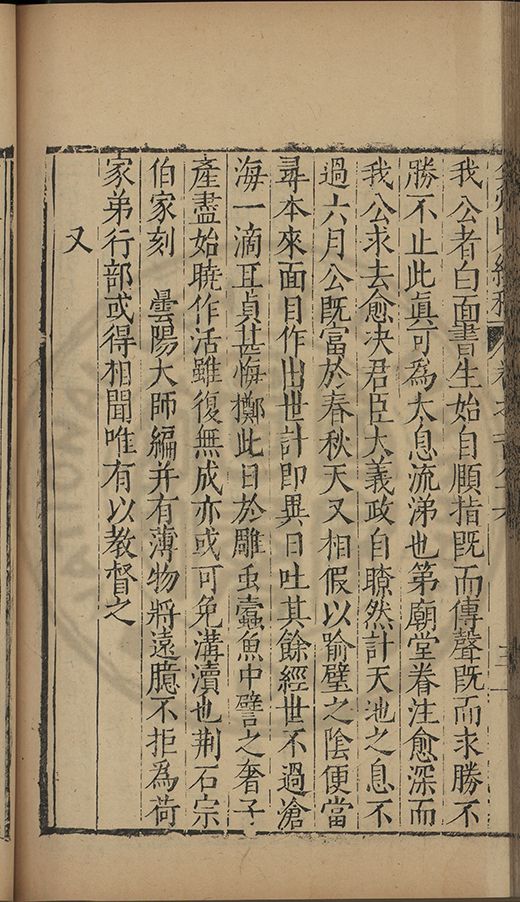 我公者白面書生始自頤指既而傳聲既而求勝不
勝不止此真可為太息流涕也第廟堂眷注愈深而
我公求去愈决君臣大義政自瞭然計天池之息不
過六月公既富於春秋天又相假以喻璧之陰便當
尋本來面目作出世計即異日吐其餘經世不過滄
海一滴耳貞甚悔擲此日於雕虫蠹魚中譬之奢子
產盡始曉作活雖復無成亦或可免溝瀆也荆石宗
伯家刻　曇陽大師編并有薄物將遠臆不拒為荷
家弟行部或得相聞唯有以教督之
又